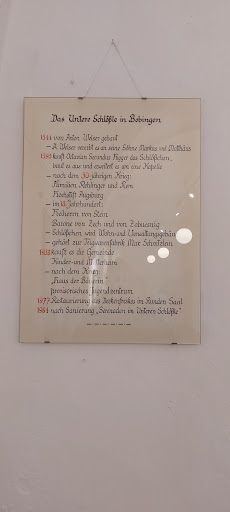 Das Untere Schlößle in Bobingen
1544 von Anton Welser gebaut
– A. Welser vererbt es an seine Söhne Markus und Matthäus
1590 kauft Octavian Secundus Fugger das Schlößchen,
baut es aus und erweitert es um eine Kapelle
– nach dem 30-jährigen Krieg:
Familien Rehlinger und Rem
Hochstift Augsburg
– im 18. Jahrhundert:
Freiherrn von Stein
Barone von Zech und von Zobuesnig
– Schlößchen wird Wohn- und Verwaltungsgebäude
– gehört zur Zigarrenfabrik Max Schnitzler
kauft es die Gemeinde
Kinder- und
– nach dem Krieg:
"Haus der Bäuerin"
provisorisches Jugendzentrum
1977 Restaurierung des Deckenfreskos im Runden Saal
1984 nach Sanierung "Serenaden im Unteren Schlößle"